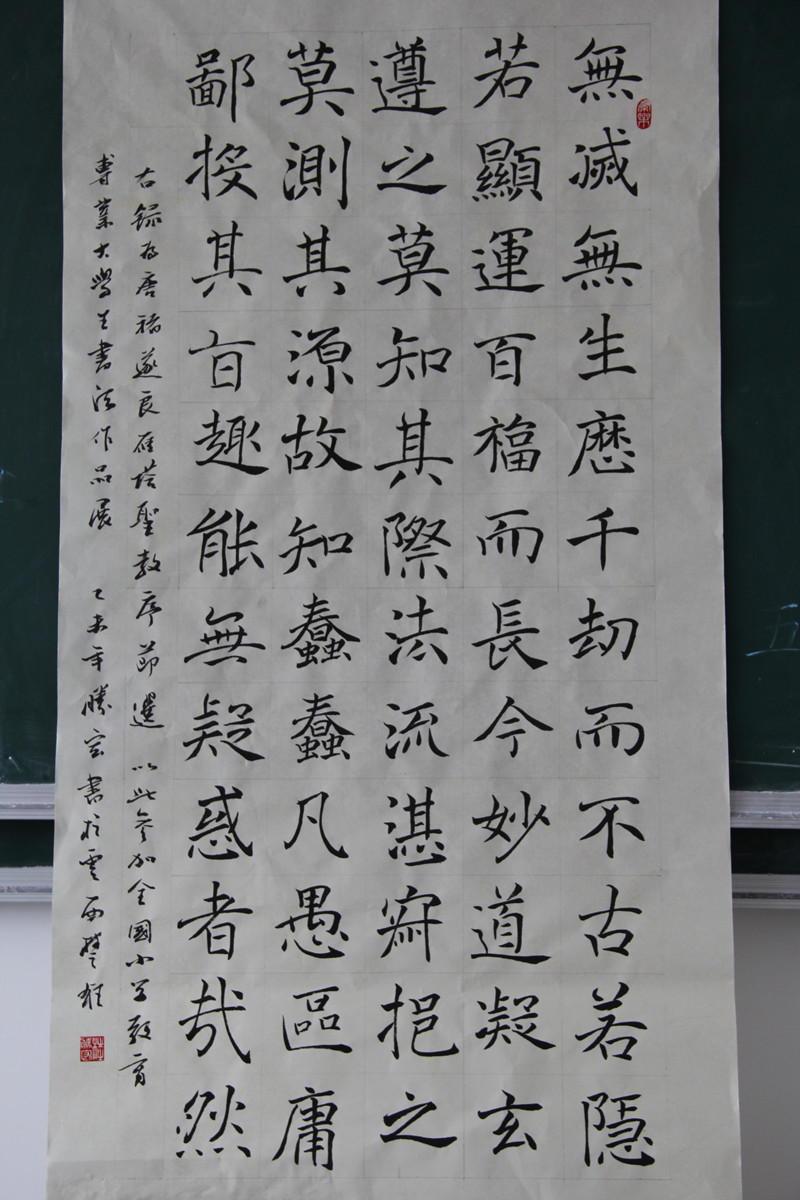 無滅無生歷千劫而不古若隱
若顯運百福而長今妙道凝玄
遵之莫知其際法流湛寂挹之
莫測其源故知蠢蠢凡愚區庸
鄙投其旨趣能無疑惑者哉然
右錄為唐褚遂良雁塔聖教序節選 以此參加全國小學教育
專業大學生書法作品展 乙未年勝宏書於雲南楚雄